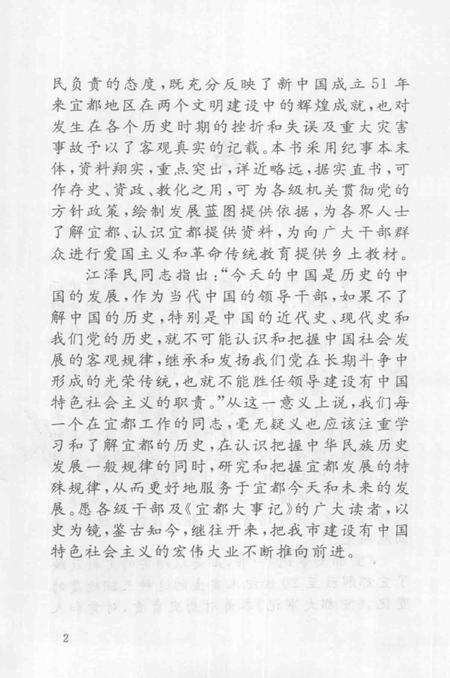 民负责的态度，既充分反映了新中国成立51年
来宜都地区在两个文明建设中的辉煌成就，也对
发生在各个历史时期的挫折和失误及重大灾害
事故予以了客观真实的记载。本书采用纪事本末
体，资料翔实，重点突出，详近略远，据实直书，可
作存史、资政、教化之用，可为各级机关贯彻党的
方针政策，绘制发展蓝图提供依据，为各界人士
了解宜都、认识宜都提供资料，为向广大干部群
众进行爱国主义和革命传统教育提供乡土教材。
江泽民同志指出：“今天的中国是历史的中
国的发展，作为当代中国的领导干部，如果不了
解中国的历史，特别是中国的近代史、现代史和
我们党的历史，就不可能认识和把握中国社会发
展的客观规律，继承和发扬我们党在长期斗争中
形成的光荣传统，也就不能胜任领导建设有中国
特色社会主义的职责。”从这一意义上说，我们每
一个在宜都工作的同志，毫无疑义也应该注重学
习和了解宜都的历史，在认识把握中华民族历史
发展一般规律的同时，研究和把握宜都发展的特
殊规律，从而更好地服务于宜都今天和未来的发
展。愿各级干部及《宜都大事记》的广大读者，以
史为镜，鉴古知今，继往开来，把我市建设有中国
特色社会主义的宏伟大业不断推向前进。
2